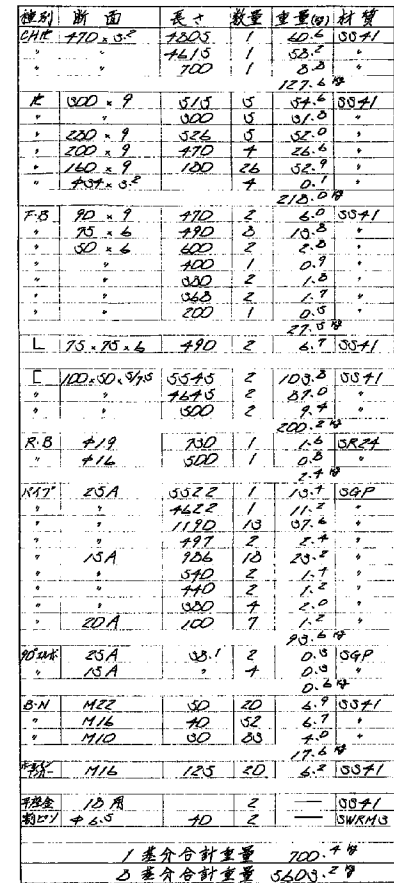 種別 断面 長さ 数量 重量(kg) 材質
CHPL 470×3.2 4805 1 60.6 SS41
〃 〃 4615 1 58.2 〃
〃 〃 700 1 8.8 〃
127.6 kg
PL 300×9 515 5 54.6 SS41
〃 〃 300 5 31.8 〃
〃 280×9 526 5 52.0 〃
〃 200×9 470 4 26.6 〃
〃 160×9 180 26 52.9 〃
〃 φ34×3.2 4 0.1 〃
218.0 kg
F.B 90×9 470 2 6.0 SS41
〃 75×6 490 8 13.8 〃
〃 50×6 600 2 2.8 〃
〃 〃 400 1 0.9 〃
〃 〃 380 2 1.8 〃
〃 〃 368 2 1.7 〃
〃 〃 200 1 0.5 〃
27.5 kg
L 75×75×6 490 2 6.7 SS41
[ 100×50×5/7.5 5545 2 103.8 SS41
〃 〃 4645 2 87.0 〃
〃 〃 500 2 9.4 〃
200.2 kg
R.B φ19 730 1 1.6 SR24
〃 φ16 500 1 0.8 〃
2.4 kg
パイプ 25A 5522 1 13.4 SGP
〃 〃 4622 1 11.2 〃
〃 〃 1190 13 37.6 〃
〃 〃 497 2 2.4 〃
〃 15A 986 18 23.2 〃
〃 〃 540 2 1.4 〃
〃 〃 440 2 1.2 〃
〃 〃 380 4 2.0 〃
〃 20A 100 7 1.2 〃
93.6 kg
90°エルボ 25A 38.1 2 0.3 SGP
〃 15A 〃 4 0.3 〃
0.6 kg
B.N M22 50 20 6.9 SS41
〃 M16 40 52 6.7 〃
〃 M10 30 88 4.0 〃
17.6 kg
M16 125 20 6.2 SS41
平座金 18用 2 — SS41
割ピン φ6.5 40 2 — SWRM3
1基分合計重量 700.4 kg
8基分合計重量 5603.2 kg